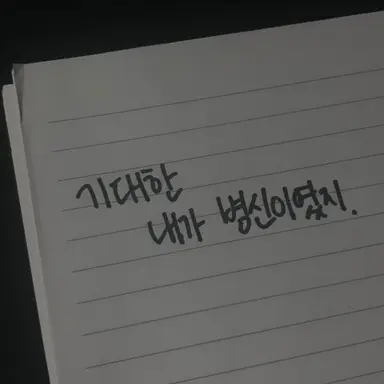 기대한
내가 병신이었지.